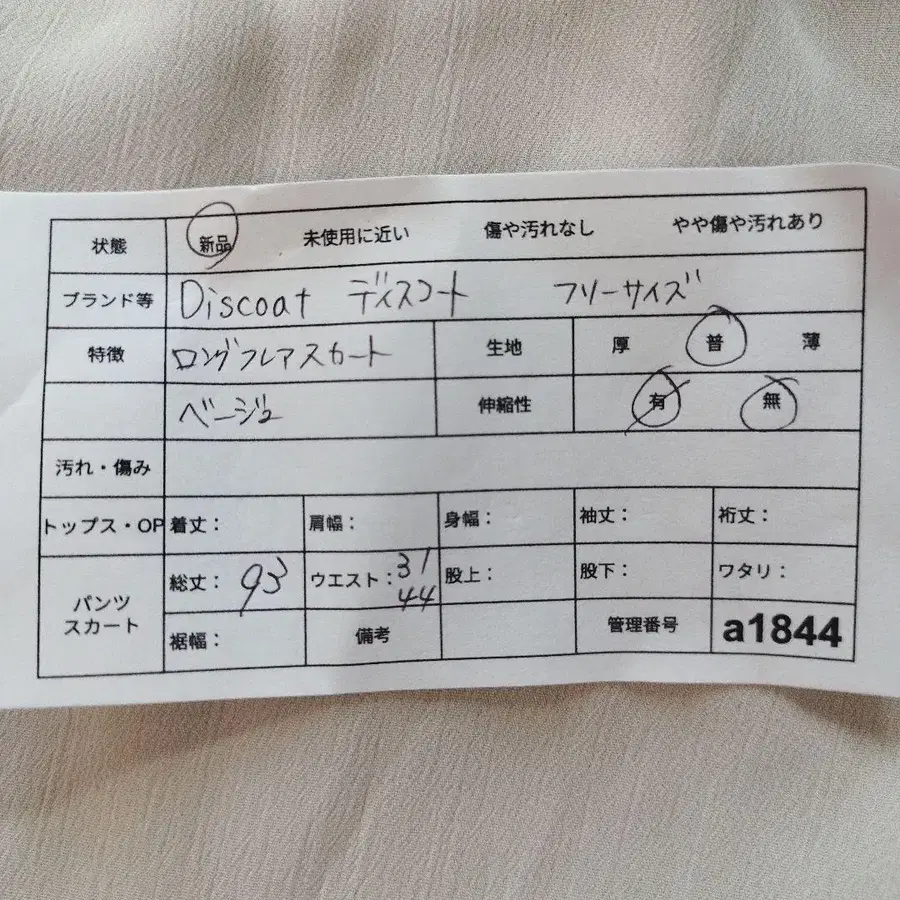 状態 新品 未使用に近い 傷や汚れなし やや傷や汚れあり
ブランド等 Discoat ディスコート フリーサイズ
特徴 ロングフレアスカート 生地 厚 普 薄
ベージュ 伸縮性 有 無
汚れ・傷み
トップス・OP 着丈: 肩幅: 身幅: 袖丈: 裄丈:
パンツ スカート 総丈: 93 ウエスト: 31 44 股上: 股下: ワタリ:
裾幅: 備考 管理番号 a1844